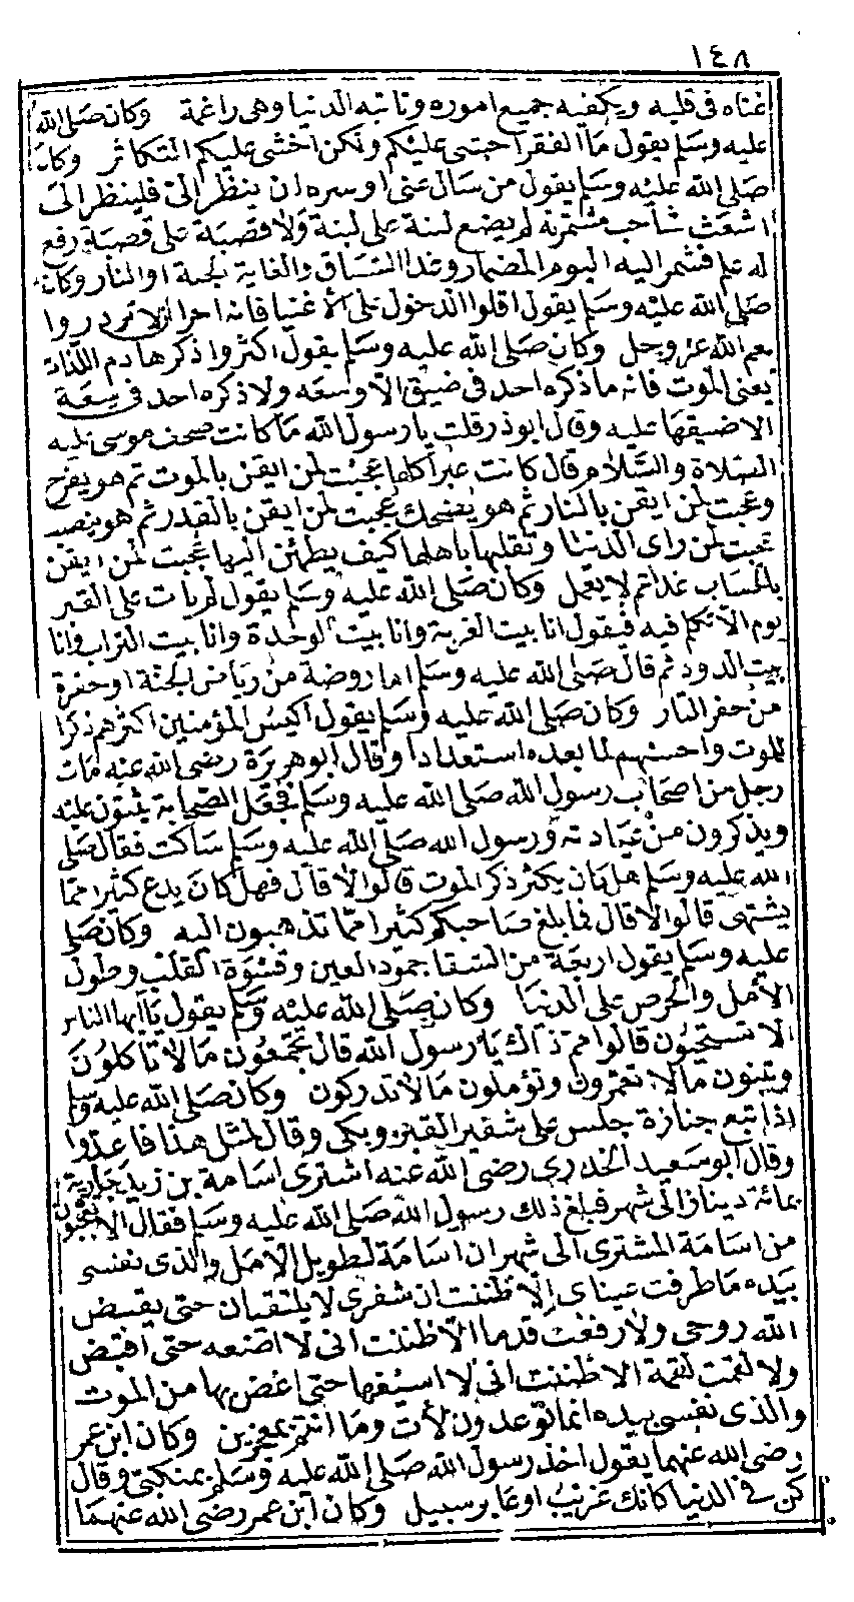 ١٤٨
غناه فى قلبه ويكفيه جميع اموره وتاتيه الدنيا وهى راغمة وكان صلى الله
عليه وسلم يقول ما الفقر اخشى عليكم ولكن اخشى عليكم التكاثر وكان
صلى الله عليه وسلم يقول من سال عنى او سره ان ينظر الىّ فلينظر الى
اشعث شاحب مشمر لم يضع لبنة على لبنة ولا قصبة على قصبة رفع
له علم فشمر اليه اليوم المضمار وغدا السباق والغاية الجنة او النار وكان
صلى الله عليه وسلم يقول اقلوا الدخول على الاغنيا فانه احرا ان لا تزدروا
نعم الله عز وجل وكان صلى الله عليه وسلم يقول اكثروا ذكر هادم اللذات
يعنى الموت فانه ما ذكره احد فى ضيق الا وسعه ولا ذكره احد فى سعة
الا ضيقها عليه وقال ابو ذر قلت يا رسول الله ما كانت صحف موسى عليه
الصلاة والسلام قال كانت عبرا كلها عجبت لمن ايقن بالموت ثم هو يفرح
وعجبت لمن ايقن بالنار ثم هو يضحك عجبت لمن ايقن بالقدر ثم هو ينصب
عجبت لمن راى الدنيا وتقلبها باهلها كيف يطمئن اليها عجبت لمن ايقن
بالحساب غدا ثم لا يعمل وكان صلى الله عليه وسلم يقول لم يات على القبر
يوم الا تكلم فيه فيقول انا بيت الغربة وانا بيت الوحدة وانا بيت التراب وانا
بيت الدود ثم قال صلى الله عليه وسلم اما روضة من رياض الجنة او حفرة
من حفر النار وكان صلى الله عليه وسلم يقول اكيس المؤمنين اكثرهم ذكرا
للموت واحسنهم لما بعده استعدادا وقال ابو هريرة رضى الله عنه مات
رجل من اصحاب رسول الله صلى الله عليه وسلم فجعل الصحابة يثنون عليه
ويذكرون من عبادته ورسول الله صلى الله عليه وسلم ساكت فقال صلى
الله عليه وسلم هل كان يكثر ذكر الموت قالوا لا قال فهل كان يدع كثيرا مما
يشتهى قالوا لا قال فما بلغ صاحبكم كثيرا مما تذهبون اليه وكان صلى
عليه وسلم يقول اربعة من الشقا جمود العين وقسوة القلب وطول
الامل والحرص على الدنيا وكان صلى الله عليه وسلم يقول يا ايها الناس
الا تستحيون قالوا مم ذاك يا رسول الله قال تجمعون ما لا تاكلون
وتبنون ما لا تعمرون وتؤملون ما لا تدركون وكان صلى الله عليه وسلم
إذا تبع جنازة جلس على شفير القبر وبكى وقال لمثل هذا فاعدّوا
وقال ابو سعيد الخدرى رضى الله عنه اشترى اسامة بن زيد جارية
بمائة دينار الى شهر فبلغ ذلك رسول الله صلى الله عليه وسلم فقال الا تعجبون
من اسامة المشترى الى شهر ان اسامة لطويل الامل والذى نفسى
بيده ما طرفت عيناى إلا ظننت ان شفرى لا يلتقيان حتى يقبض
الله روحى ولا رفعت قدما الا ظننت انى لا اضعه حتى اقبض
ولا لقمت لقمة الا ظننت انى لا اسيغها حتى اغص بها من الموت
والذى نفسى بيده انما توعدون لات وما انتم بمعجزين وكان ابن عمر
رضى الله عنهما يقول اخذ رسول الله صلى الله عليه وسلم بمنكبى وقال
كن فى الدنيا كانك غريب او عابر سبيل وكان ابن عمر رضى الله عنهما